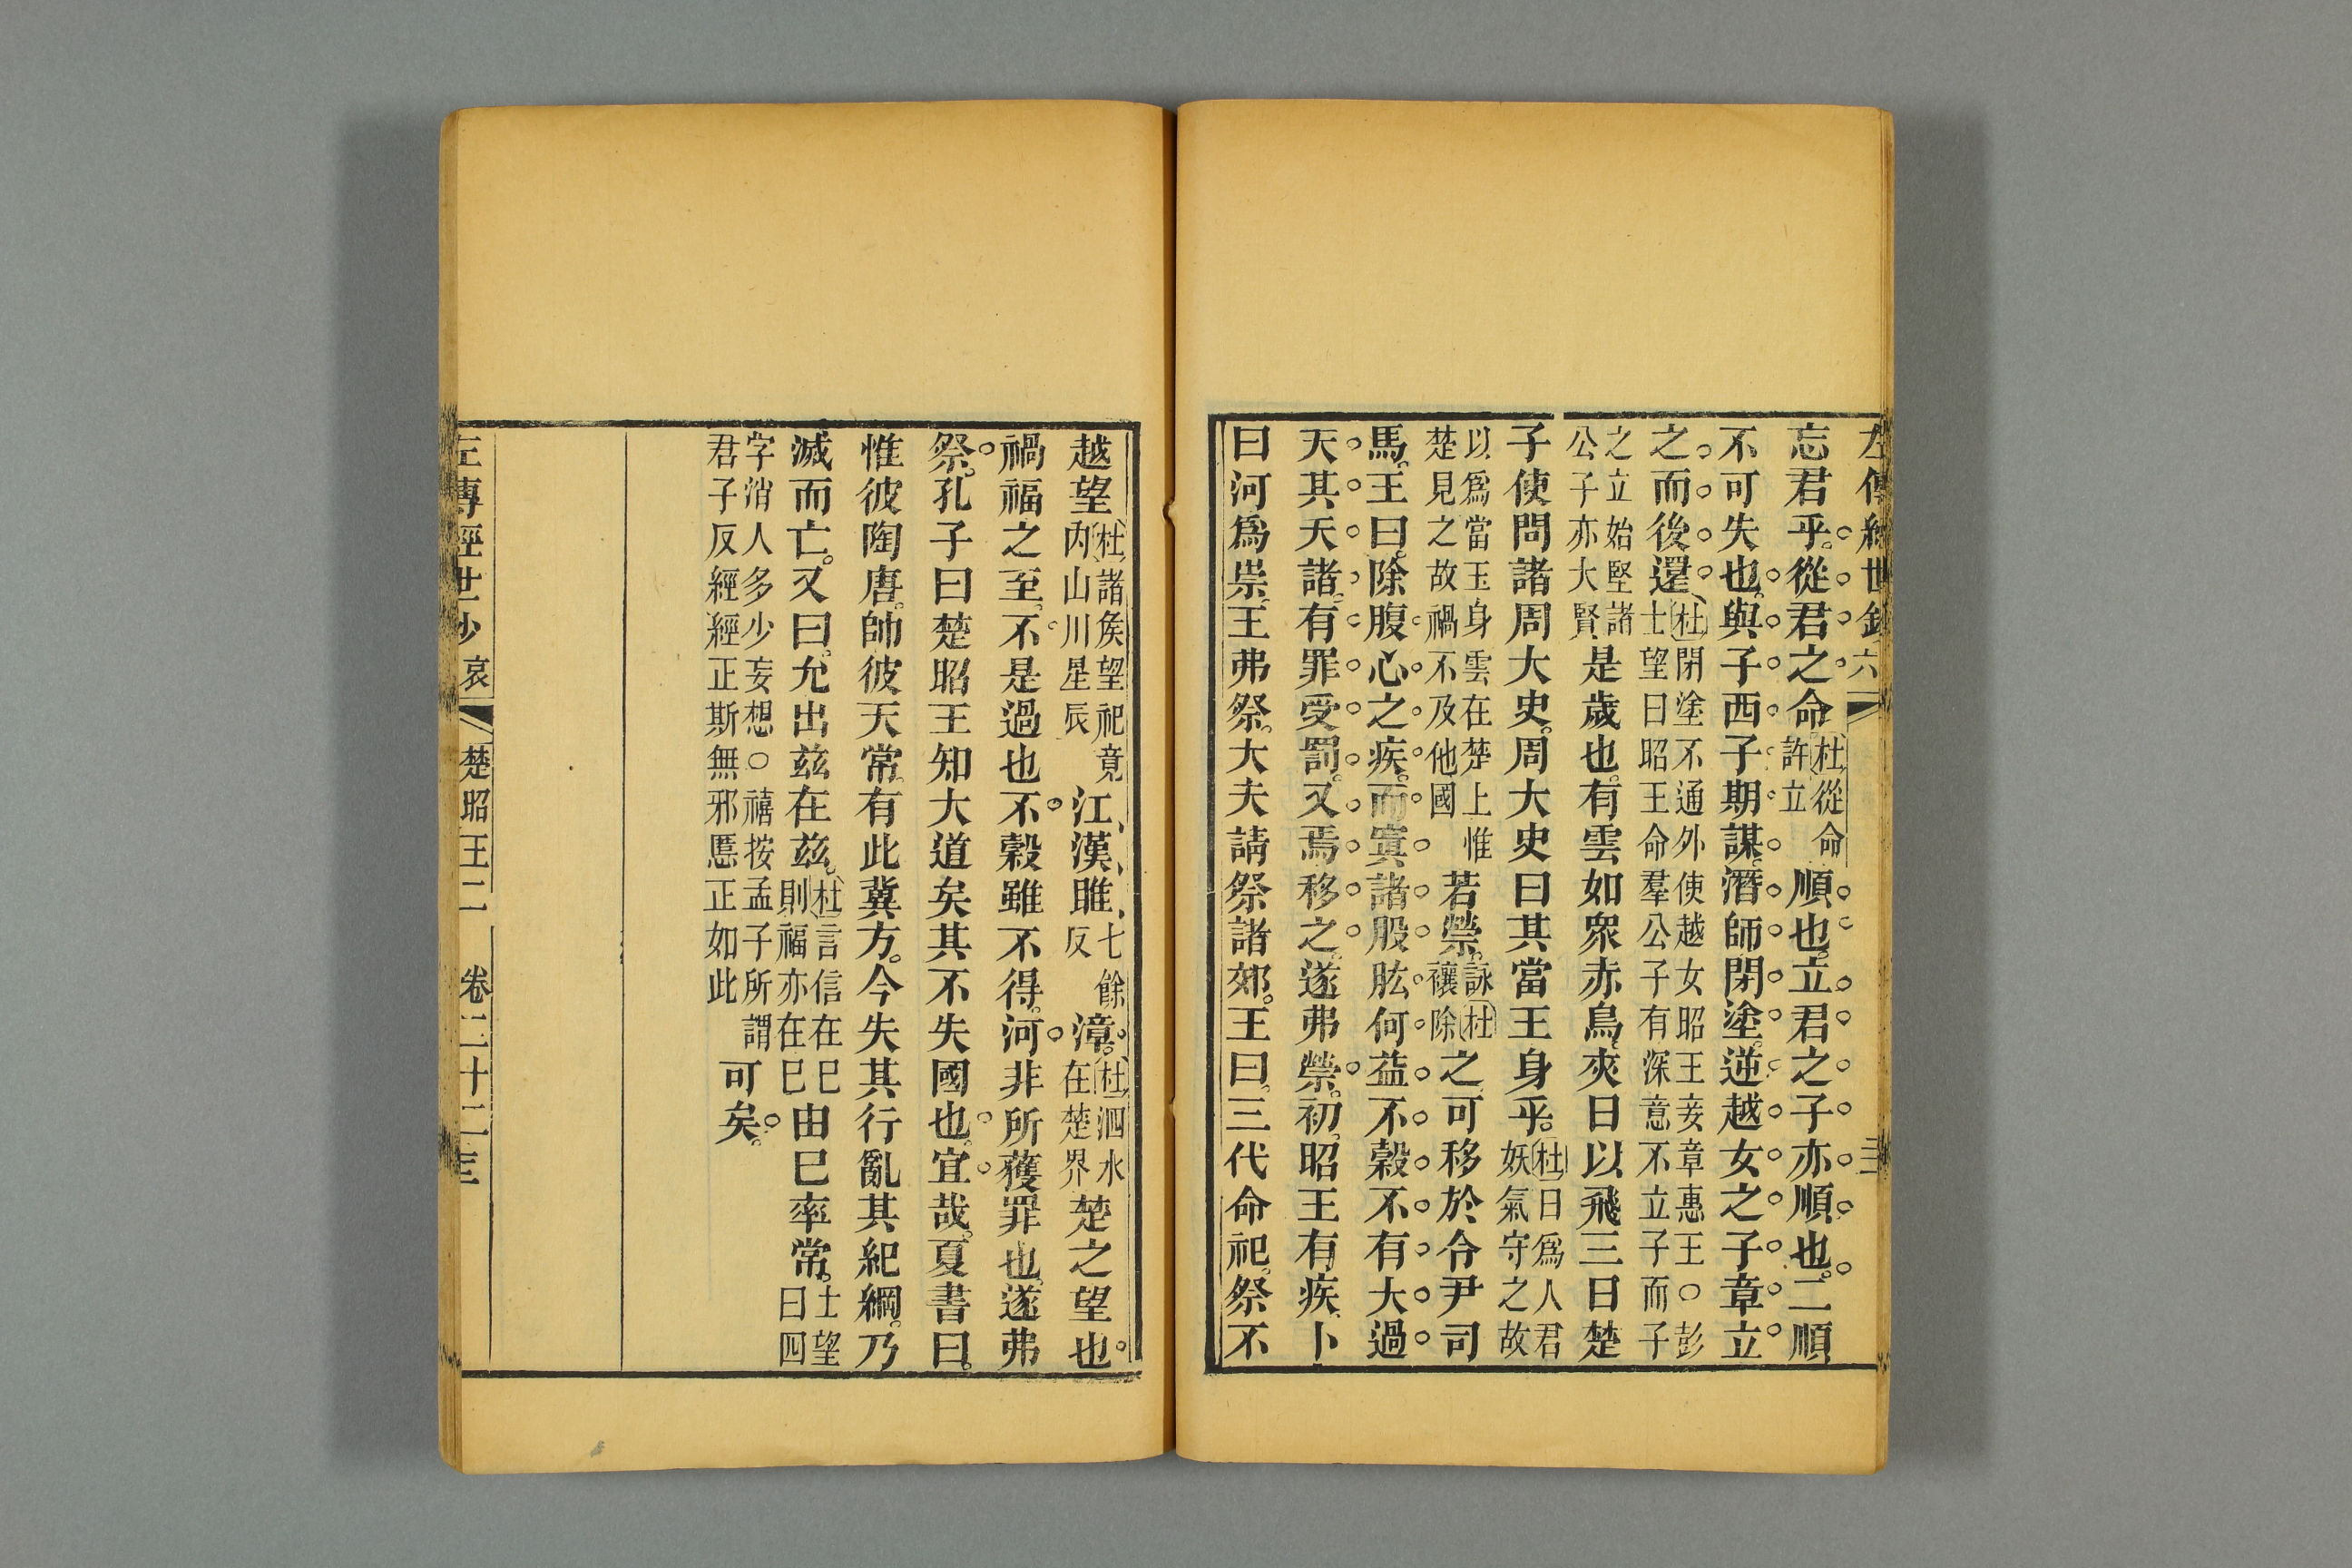 左傳經世鈔 六
忘君乎從君之命杜從命許立順也立君之子亦順也二順
不可失也與子西子期謀潛師閉塗逆越女之子章立
之而後還杜閉塗不通外使越女昭王妾章惠王○彭士望曰昭王命羣公子有深意不立子而子
之立始堅諸公子亦大賢是歲也有雲如衆赤鳥夾日以飛三日楚
子使問諸周大史周大史曰其當王身乎杜日爲人君妖氣守之故
以爲當王身雲在楚上惟楚見之故禍不及他國若禜詠杜禳除之可移於令尹司
馬王曰除腹心之疾而寘諸股肱何益不穀不有大過
天其夭諸有罪受罰又焉移之遂弗禜初昭王有疾卜
曰河爲祟王弗祭大夫請祭諸郊王曰三代命祀祭不
越望杜諸侯望祀竟內山川星辰江漢雎七餘反漳杜泗水在楚界楚之望也
禍福之至不是過也不穀雖不得河非所獲罪也遂弗
祭孔子曰楚昭王知大道矣其不失國也宜哉夏書曰
惟彼陶唐帥彼天常有此冀方今失其行亂其紀綱乃
滅而亡又曰允出茲在茲杜言信在巳則福亦在巳由巳率常士望曰四
字消人多少妄想○禧按孟子所謂君子反經經正斯無邪慝正如此可矣
左傳經世鈔 哀 楚昭王二 卷二十二